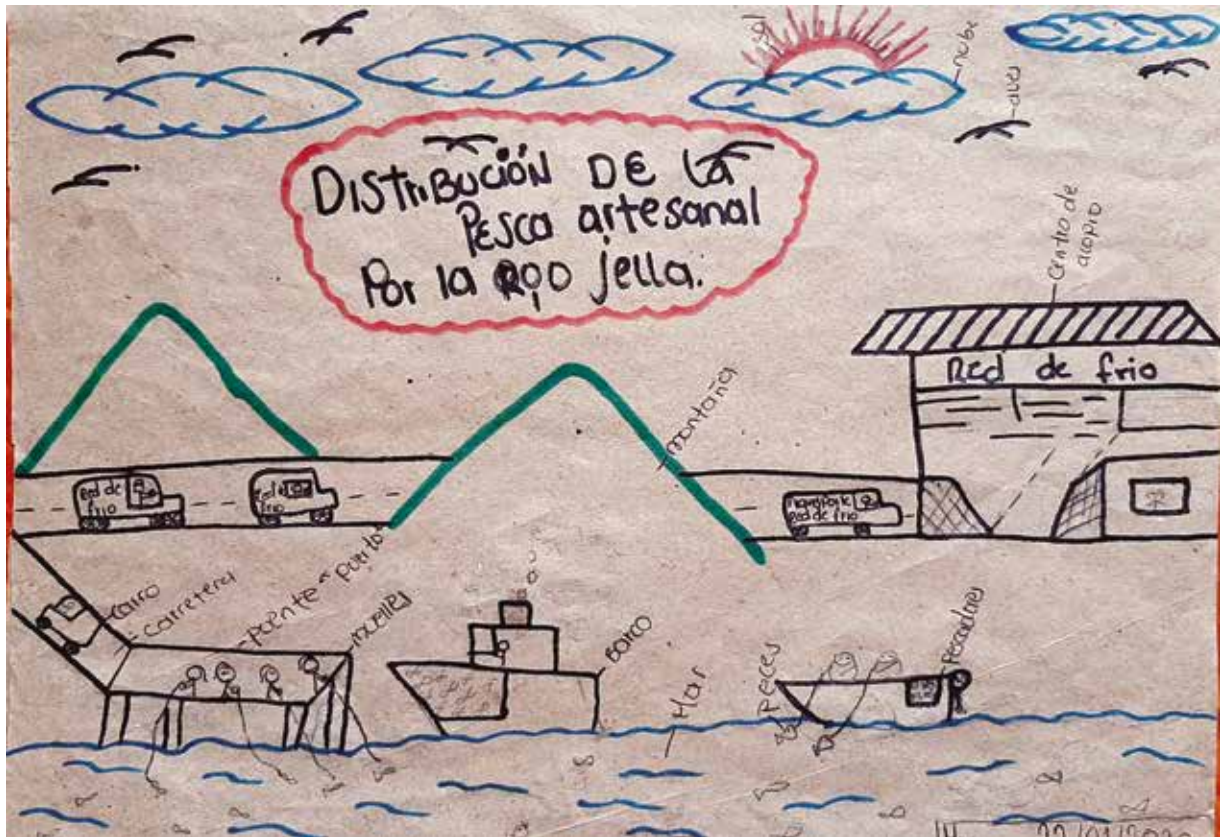 sol
nube
aves
DIStRiBUCIÓN DE La
PESCa artesanal
Por la Rº0 jella.
Centro de
acopio
Red de frio
montaña
Red de
frio
Red de
frio
transporte
Red de frio
carro
carretera
puente
puerto
muelles
Barco
Mar
Peces
Pescadores